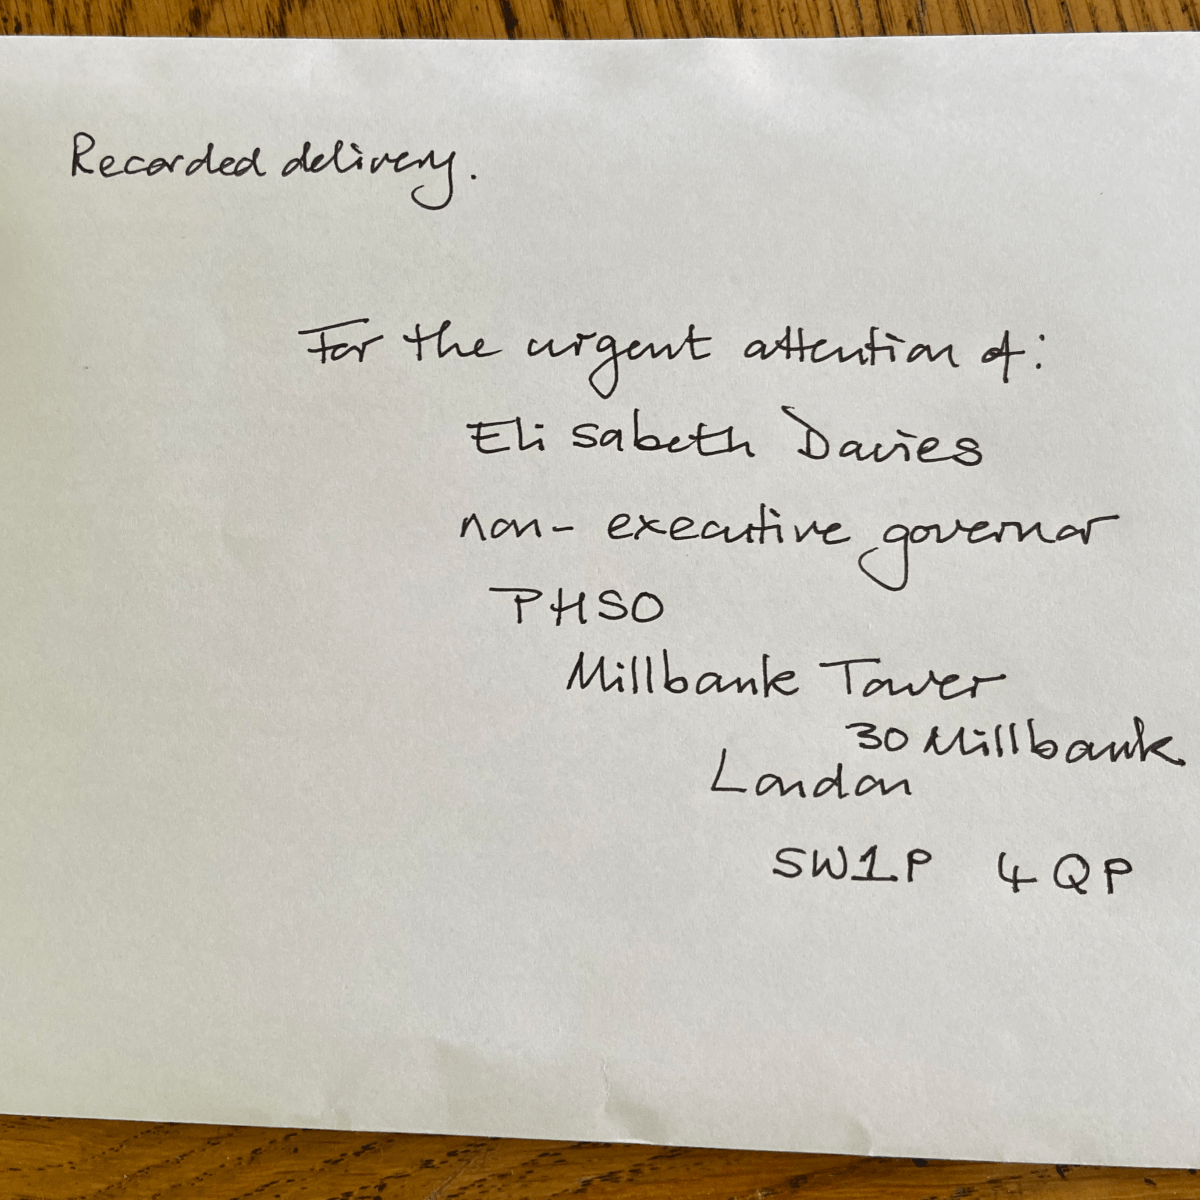 Recorded delivery.
For the urgent attention of:
Elisabeth Davies
non-executive governor
PHSO
Millbank Tower
30 Millbank
London
SW1P 4QP